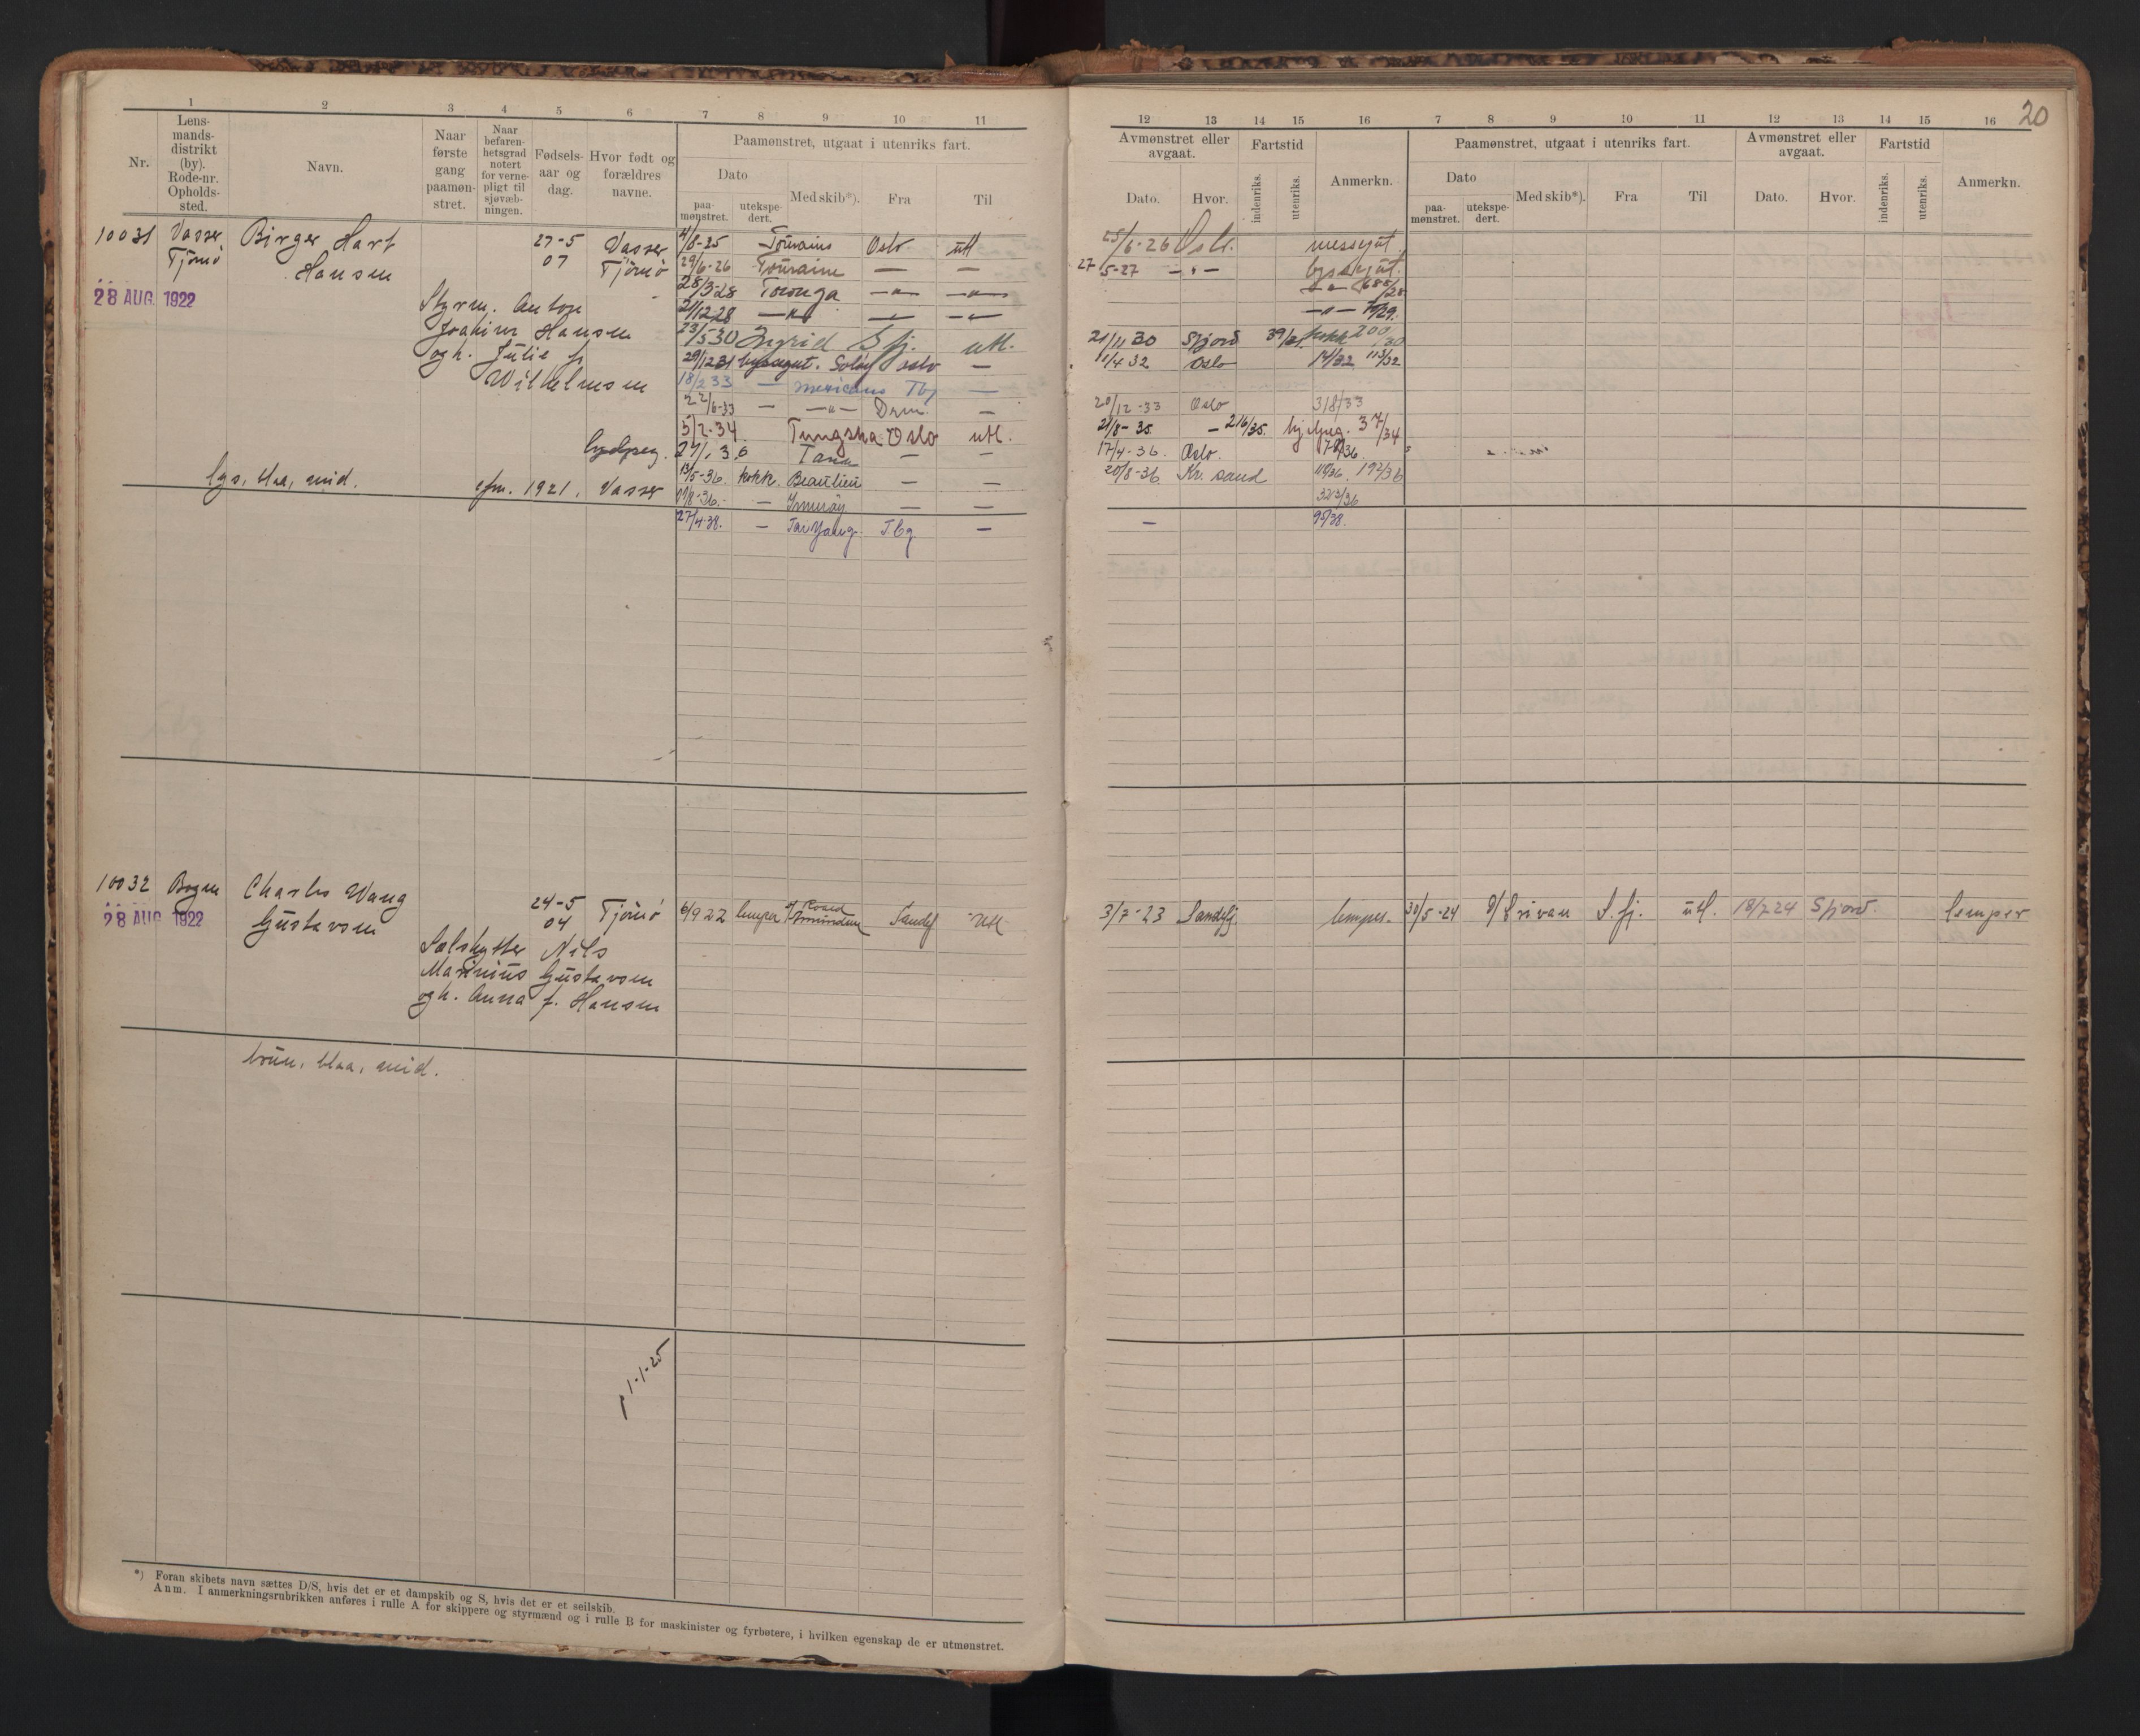 20
1 2 3 4 5 6 7 8 9 10 11
Nr.
Lens-
mands-
distrikt
(by).
Rode-nr.
Opholds-
sted.
Navn.
Naar
første
gang
paamøn-
stret.
Naar
befaren-
hetsgrad
notert
for verne-
pligt til
sjøvæb-
ningen.
Fødsels-
aar og
dag.
Hvor født og
forældres
navne.
Paamønstret, utgaat i utenriks fart.
Dato
paa-
mønstret.
utekspe-
dert.
Med skib*).
Fra
Til
12 13 14 15 16 7 8 9 10 11 12 13 14 15 16
Avmønstret eller
avgaat.
Dato.
Hvor.
Fartstid
indenriks.
utenriks.
Anmerkn.
Paamønstret, utgaat i utenriks fart.
Dato
paa-
mønstret.
utekspe-
dert.
Med skib*).
Fra
Til
Avmønstret eller
avgaat.
Dato.
Hvor.
Fartstid
indenriks.
utenriks.
Anmerkn.
10031 Vasser Birger Hart 27-5 Vasser
Tjømø Hansen 07 Tjømø
28 AUG. 1922
Styrm. Anton
Joakim Hansen
og h. Julie f
Wilhelmsen
lys, blaa, mid. efm. 1921, Vasser
4/8-25 Touraine Oslo utl
29/6-26 Touraine — —
28/3-28 Toronga —"— —"—
21/12 28 —"— —"— —"—
23/5-30 Ingrid S fj. utl.
29/12 31 byssegut. Soløy Oslo —
18/2 33 — Mexicano Tbg —
22/6-33 — —"— Dram. —
5/2-34 Tungsha Oslo utl.
27/1 36 Tana — —
13/5-36 kokk Beaulieu — —
— — —
27/4-38. — Tai Yang. Tbg —
25/6-26 Oslo. messegut.
27/5-27 —"— byssegut.
—"— 688/28
21/11 30 Sfjord kokk 200/30
11/4 32 Oslo 14/32 113/32
20/12-33 Oslo 318/33
21/8-35 — 216/35. 37/34
17/4-36. Oslo.
20/8-36 Kr. sand 110/36. 192/36
323/36
— 95/38.
10032 Bogen Charles Wang 24-5 Tjømø
28 AUG 1922 Gustavsen 04
Sælskytter Nils
Marinius Gustavsen
og h. Anna f. Hansen
brun, blaa, mid.
6/9 22 lemper Roald Amundsen Sandef utl
3/7-23 Sandefj. lemper. 30/5-24 S. fj. utl. 18/7 24 Sfjord. lemper
1-1-25
*) Foran skibets navn sættes D/S, hvis det er et dampskib og S, hvis det er et seilskib.
Anm. I anmerkningsrubrikken anføres i rulle A for skippere og styrmænd og i rulle B for maskinister og fyrbøtere, i hvilken egenskap de er utmønstret.